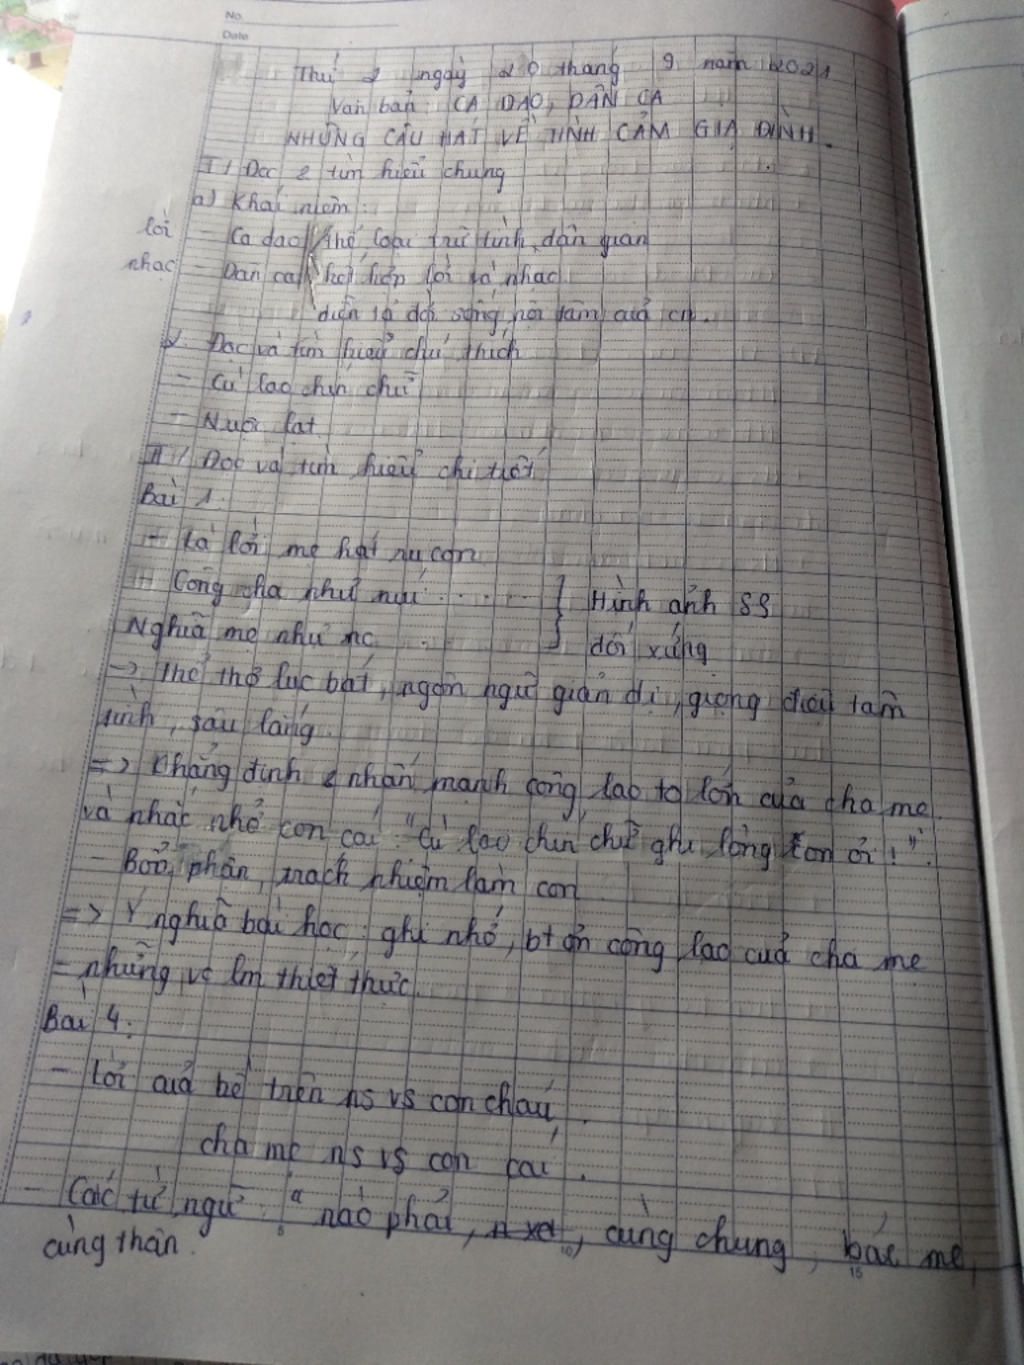 No.
Date
Thứ 2 ngày 20 tháng 9 năm 2021
Văn bản: CA DAO, DÂN CA
NHỮNG CÂU HÁT VỀ TÌNH CẢM GIA ĐÌNH.
I/ Đọc & tìm hiểu chung
a) Khái niệm:
lời - Ca dao thể loại trữ tình dân gian
nhạc - Dân ca kết hợp lời và nhạc
diễn tả đời sống nội tâm của cn.
Đọc và tìm hiểu chú thích
- Cù lao chín chữ
- Nuộc lạt
II/ Đọc và tìm hiểu chi tiết
Bài 1.
- Là lời mẹ hát ru con
Công cha như núi ....... } Hình ảnh SS
Nghĩa mẹ như nc ... đối xứng
-> Thể thơ lục bát, ngôn ngữ giản dị, giọng điệu tâm
tình, sâu lắng.
=> Khẳng định & nhấn mạnh công lao to lớn của cha mẹ.
và nhắc nhở con cái "Cù lao chín chữ ghi lòng con ơi!".
- Bổn phận, trách nhiệm làm con
=> Ý nghĩa bài học: ghi nhớ, bt ơn công lao của cha mẹ
= những vc lm thiết thực.
Bài 4:
- Lời của bề trên ns vs con cháu.
cha mẹ ns vs con cái.
- Các từ ngữ: "nào phải, n xa, cùng chung, bác mẹ,
cùng thân.
5
10
15